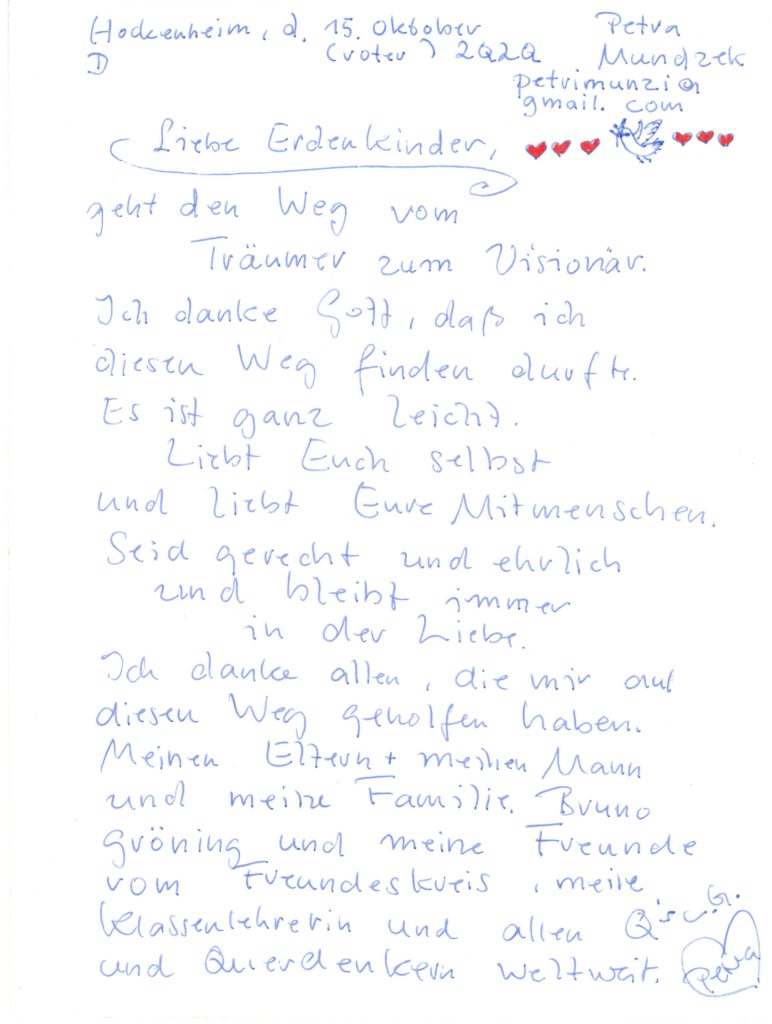 Hockenheim, d. 15. Oktober Petra
D (roter) 2Q2Q Mundzek
petrimunzi@
gmail.com
Liebe Erdenkinder,
geht den Weg vom
Träumer zum Visionär.
Ich danke Gott, daß ich
diesen Weg finden durfte.
Es ist ganz leicht.
Liebt Euch selbst
und liebt Eure Mitmenschen.
Seid gerecht und ehrlich
und bleibt immer
in der Liebe.
Ich danke allen, die mir auf
diesen Weg geholfen haben.
Meinen Eltern + meinen Mann
und meine Familie. Bruno
gröning und meine Freunde
vom Freundeskreis, meine
Klassenlehrerin und allen Q's
und Querdenkern weltweit. Petra